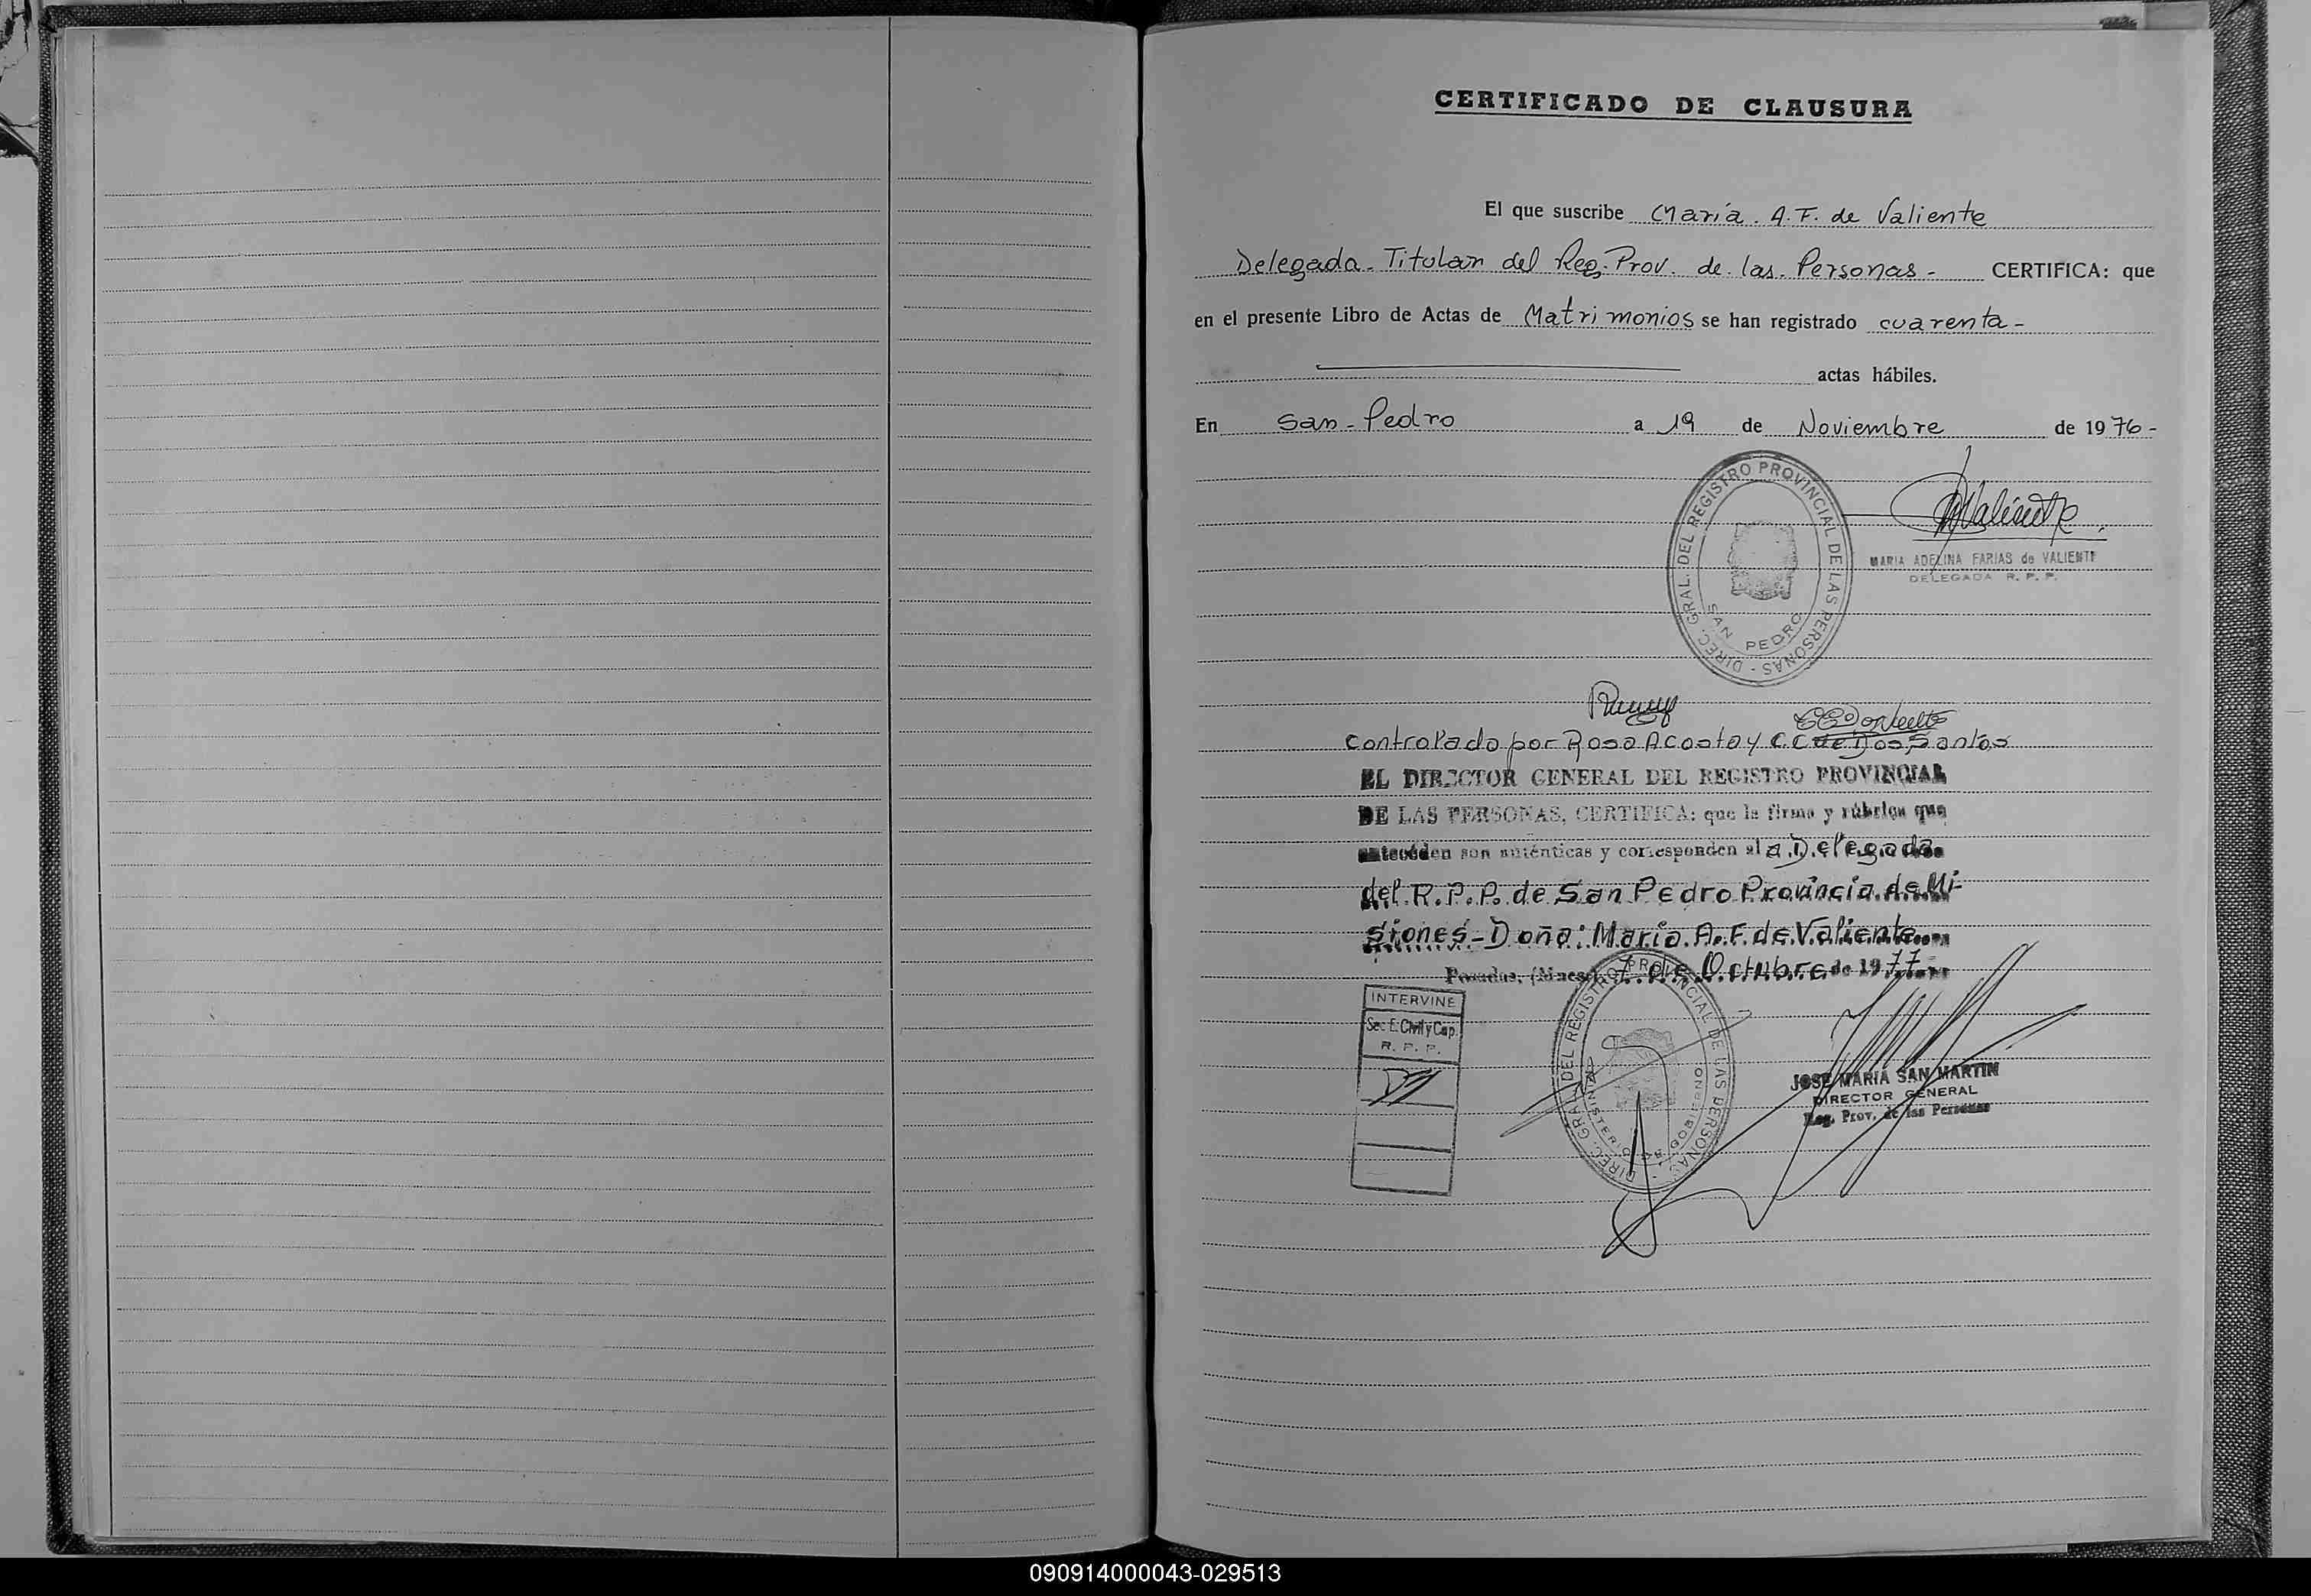 CERTIFICADO DE CLAUSURA
El que suscribe María. A. F. de Valiente
Delegada - Titular del Reg. Prov. de las Personas - CERTIFICA: que
en el presente Libro de Actas de Matrimonios se han registrado cuarenta -
actas hábiles.
En San - Pedro a 19 de Noviembre de 1976 -
DIREC. GRAL. DEL REGISTRO PROVINCIAL DE LAS PERSONAS -
SAN PEDRO
MValiente
MARIA ADELINA FARIAS de VALIENTE
DELEGADA R. P. P.
Controlado por Rosa Acosta y C.C de Dos Santos
EL DIRECTOR GENERAL DEL REGISTRO PROVINCIAL
DE LAS PERSONAS, CERTIFICA: que la firma y rúbrica que
anteceden son auténticas y corresponden al a Delegada
del R. P. P. de San Pedro Provincia de Mi-
siones - Doña: Maria A. F. de Valiente
Posadas, (Mnes.) 7 de Octubre de 1977
INTERVINE
Sec. E. Civil y Cap.
R. P. P.
DIREC. GRAL. DEL REGISTRO PROVINCIAL DE LAS PERSONAS -
MINISTERIO DE GOBIERNO
JOSE MARIA SAN MARTIN
DIRECTOR GENERAL
Reg. Prov. de las Personas
090914000043-029513